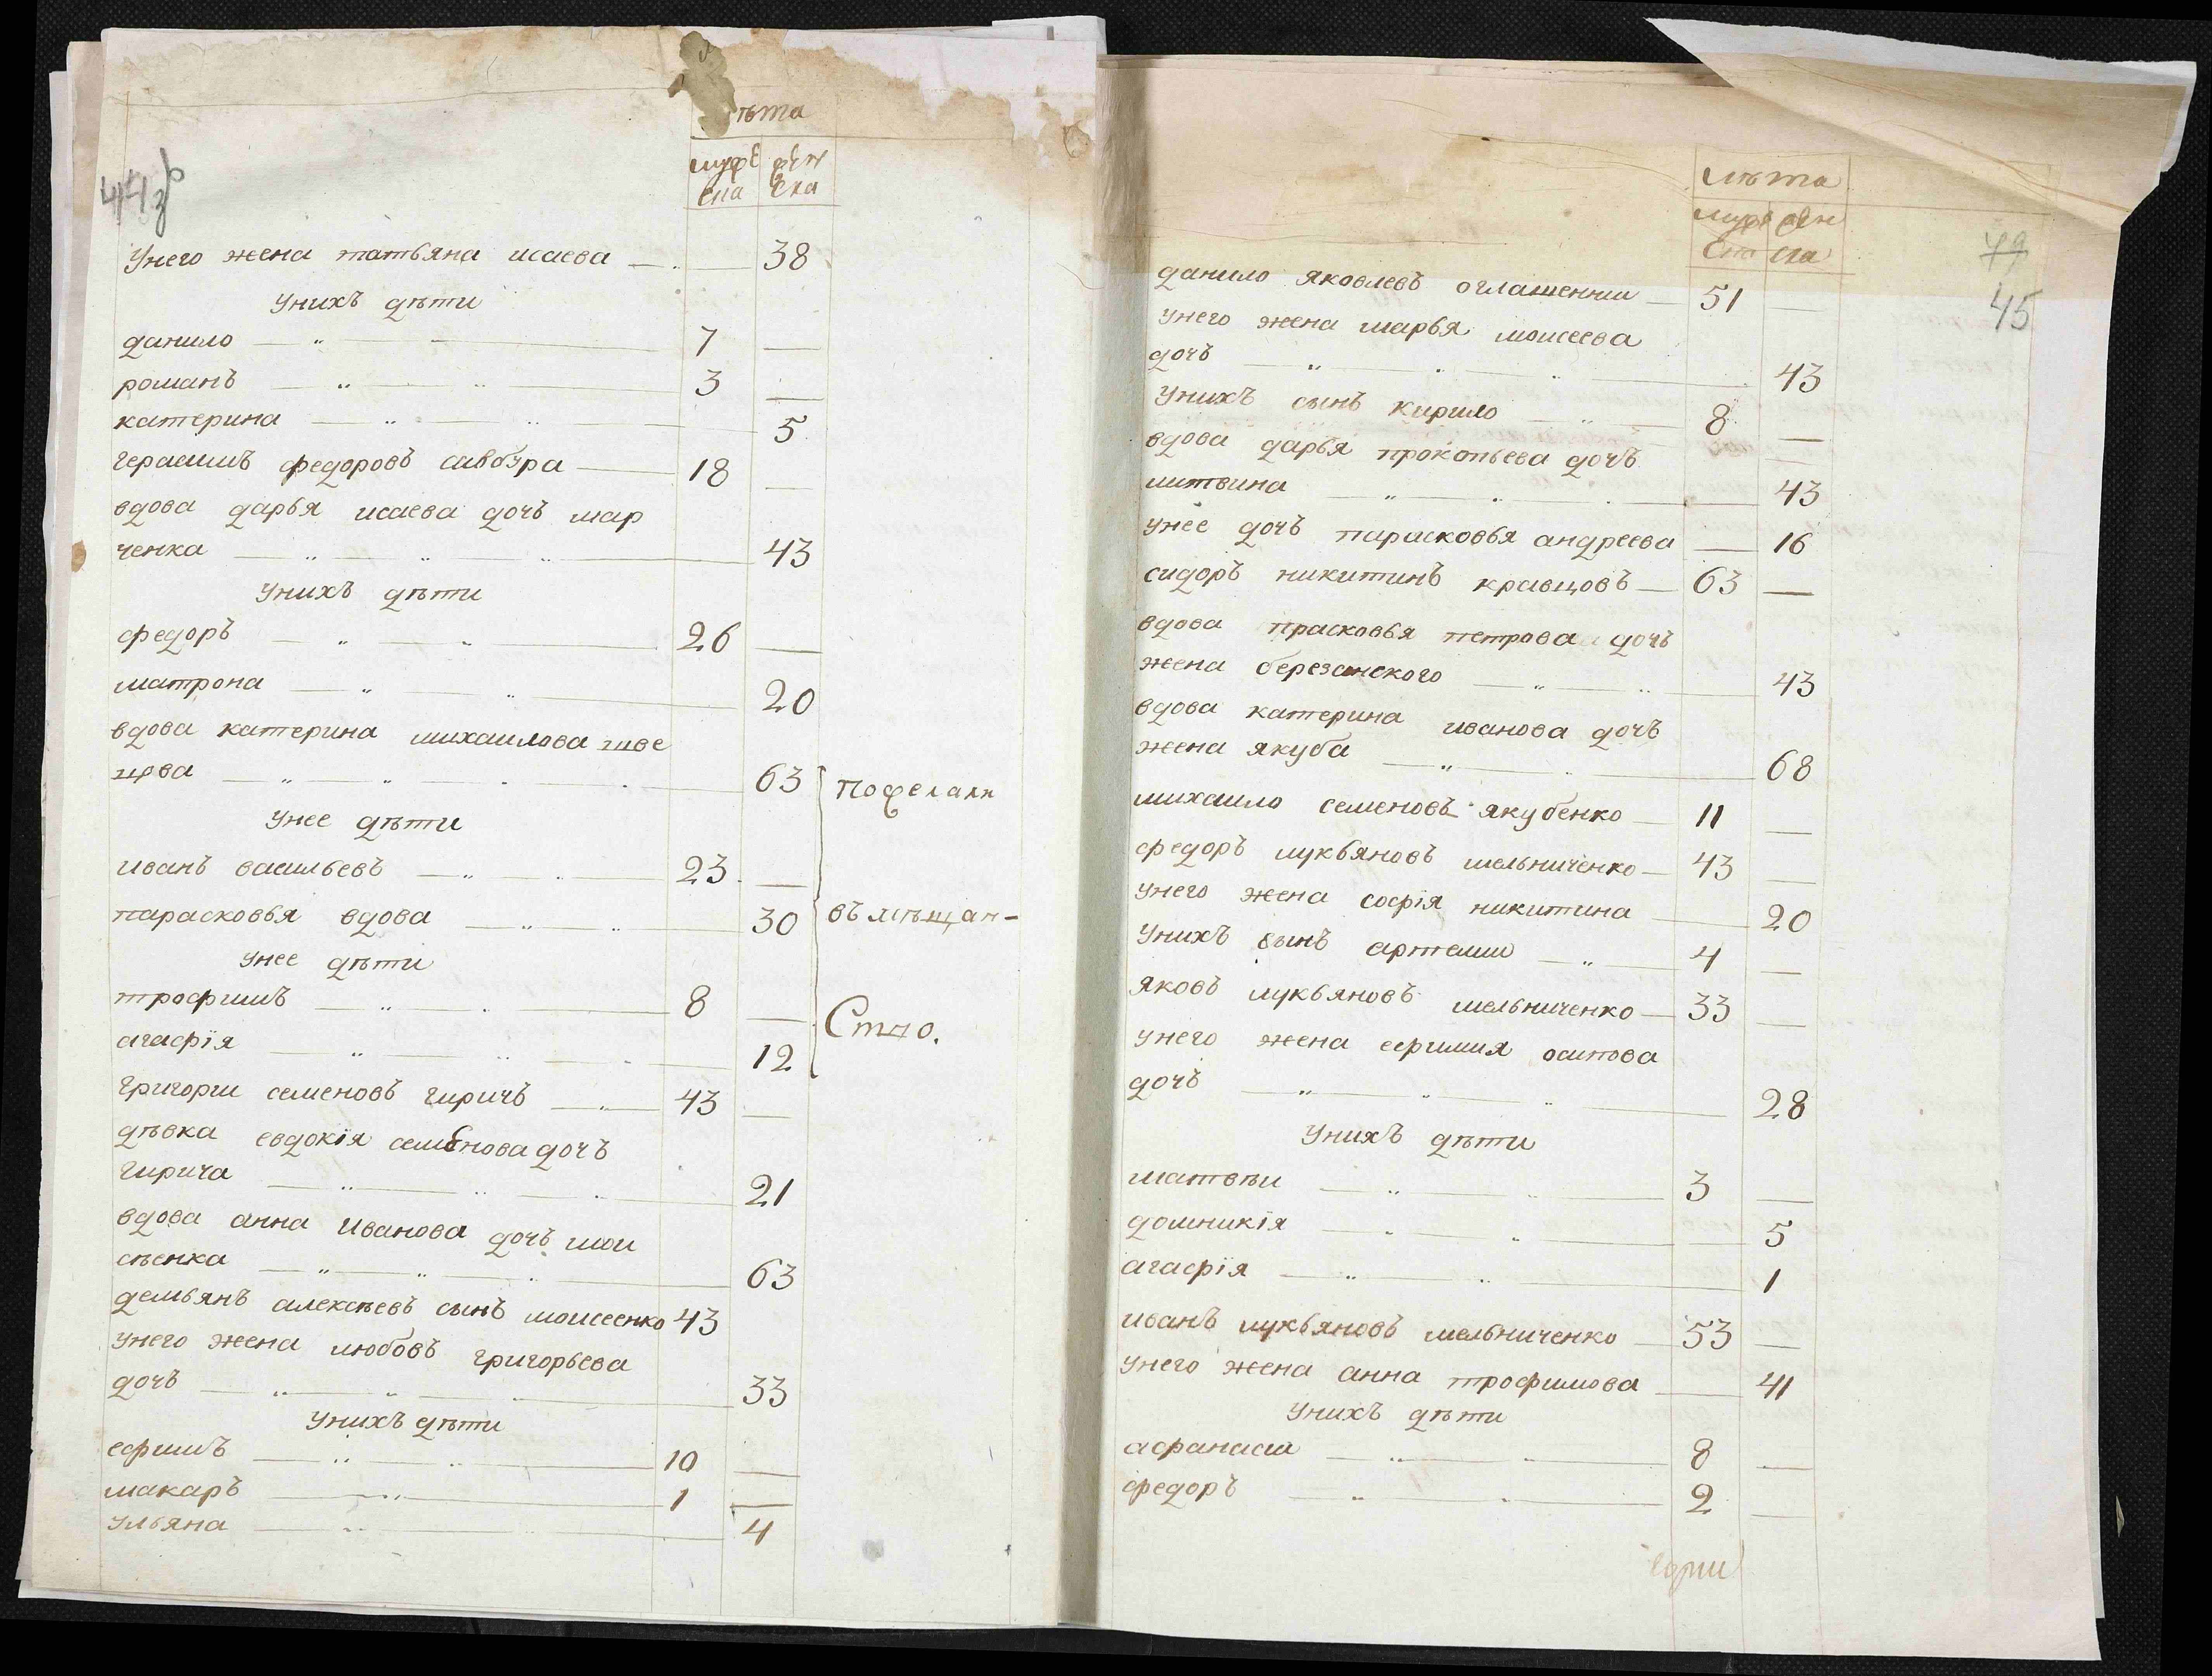 44 зв
ѣта
муже жен
ска ска
унего жена татьяна исаева 38
унихъ дѣти
данило 7
романъ 3
катерина 5
герасимъ федоровъ 18
вдова дарья исаева дочь мар
ченка 43
унихъ дѣти
федоръ 26
матрона 20
вдова катерина михаилова шве
цова 63
унее дѣти
иванъ васильевъ 23
парасковья вдова 30
унее дѣти
трофимъ 8
агафія 12
григории семеновъ гиричъ 43
дѣвка евдокія семенова дочъ
гирича 21
вдова анна иванова дочъ мои
сѣенка 63
демьянъ алексѣевъ сынъ моисеенко 43
унего жена любовъ григорьева
дочъ 33
унихъ дѣти
ефимъ 10
макаръ 1
ульяна 4
въ мѣщан-
ство.
лѣта
муже жен
ска ска
49
45
данило яковлевъ оглашеннии 51
унего жена марья моисеева
дочъ 43
унихъ сынъ кирило 8
вдова дарья прокопьева дочъ
литвина 43
унее дочъ парасковья андреева 16
сидоръ никитинъ кравцовъ 63
вдова прасковья петрова дочъ
жена березанского 43
вдова катерина иванова дочъ
жена якуба 68
михаило семеновъ якубенко 11
федоръ лукьяновъ мельниченко 43
унего жена софія никитина 20
унихъ сынъ артемии 4
яковъ лукьяновъ мельниченко 33
унего жена ефимия осипова
дочъ 28
унихъ дѣти
матвѣи 3
домникія 5
агафія 1
иванъ лукьяновъ мельниченко 53
унего жена анна трофимова 41
унихъ дѣти
афанасии 8
федоръ 2